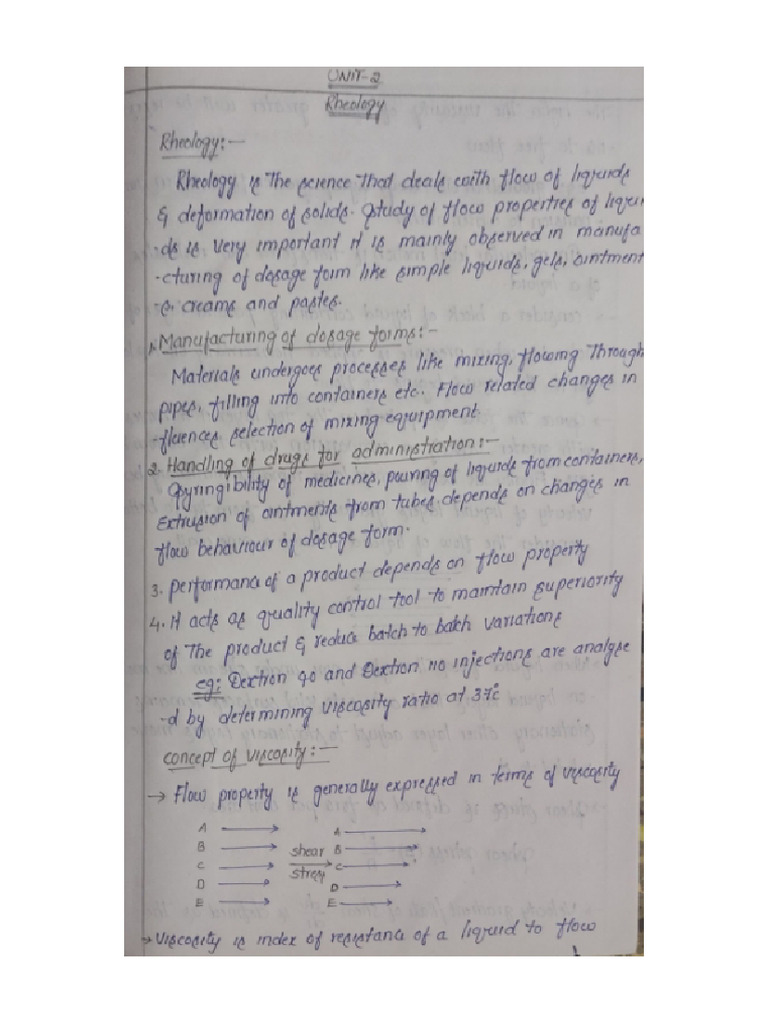 UNIT-2
Rheology
Rheology:-
Rheology is The science that deals with flow of liquids
& deformation of solids. Study of flow properties of liqui
-ds is very important it is mainly observed in manufa
-cturing of dosage form like simple liquids, gels, ointment
-s, creams and pastes.
1. Manufacturing of dosage forms:-
Materials undergoes processes like mixing, flowing Through
pipes, filling into containers etc.. Flow related changes in
-fluences selection of mixing equipment.
2. Handling of drugs for administration:-
Syringibility of medicines, pouring of liquids from containers,
Extrusion of ointments from tubes depends on changes in
flow behaviour of dosage form.
3. performance of a product depends on flow property
4. It acts as quality control tool to maintain superiority
of The product & reduce batch to batch variations
eg: Dextron 40 and Dextron 110 injections are analyse
-d by determining viscosity ratio at 37°C
concept of viscosity:-
→ Flow property is generally expressed in terms of viscosity
A → A →
B → shear B →
C → stress C →
D → D →
E → E →
→ Viscosity is index of resistance of a liquid to flow